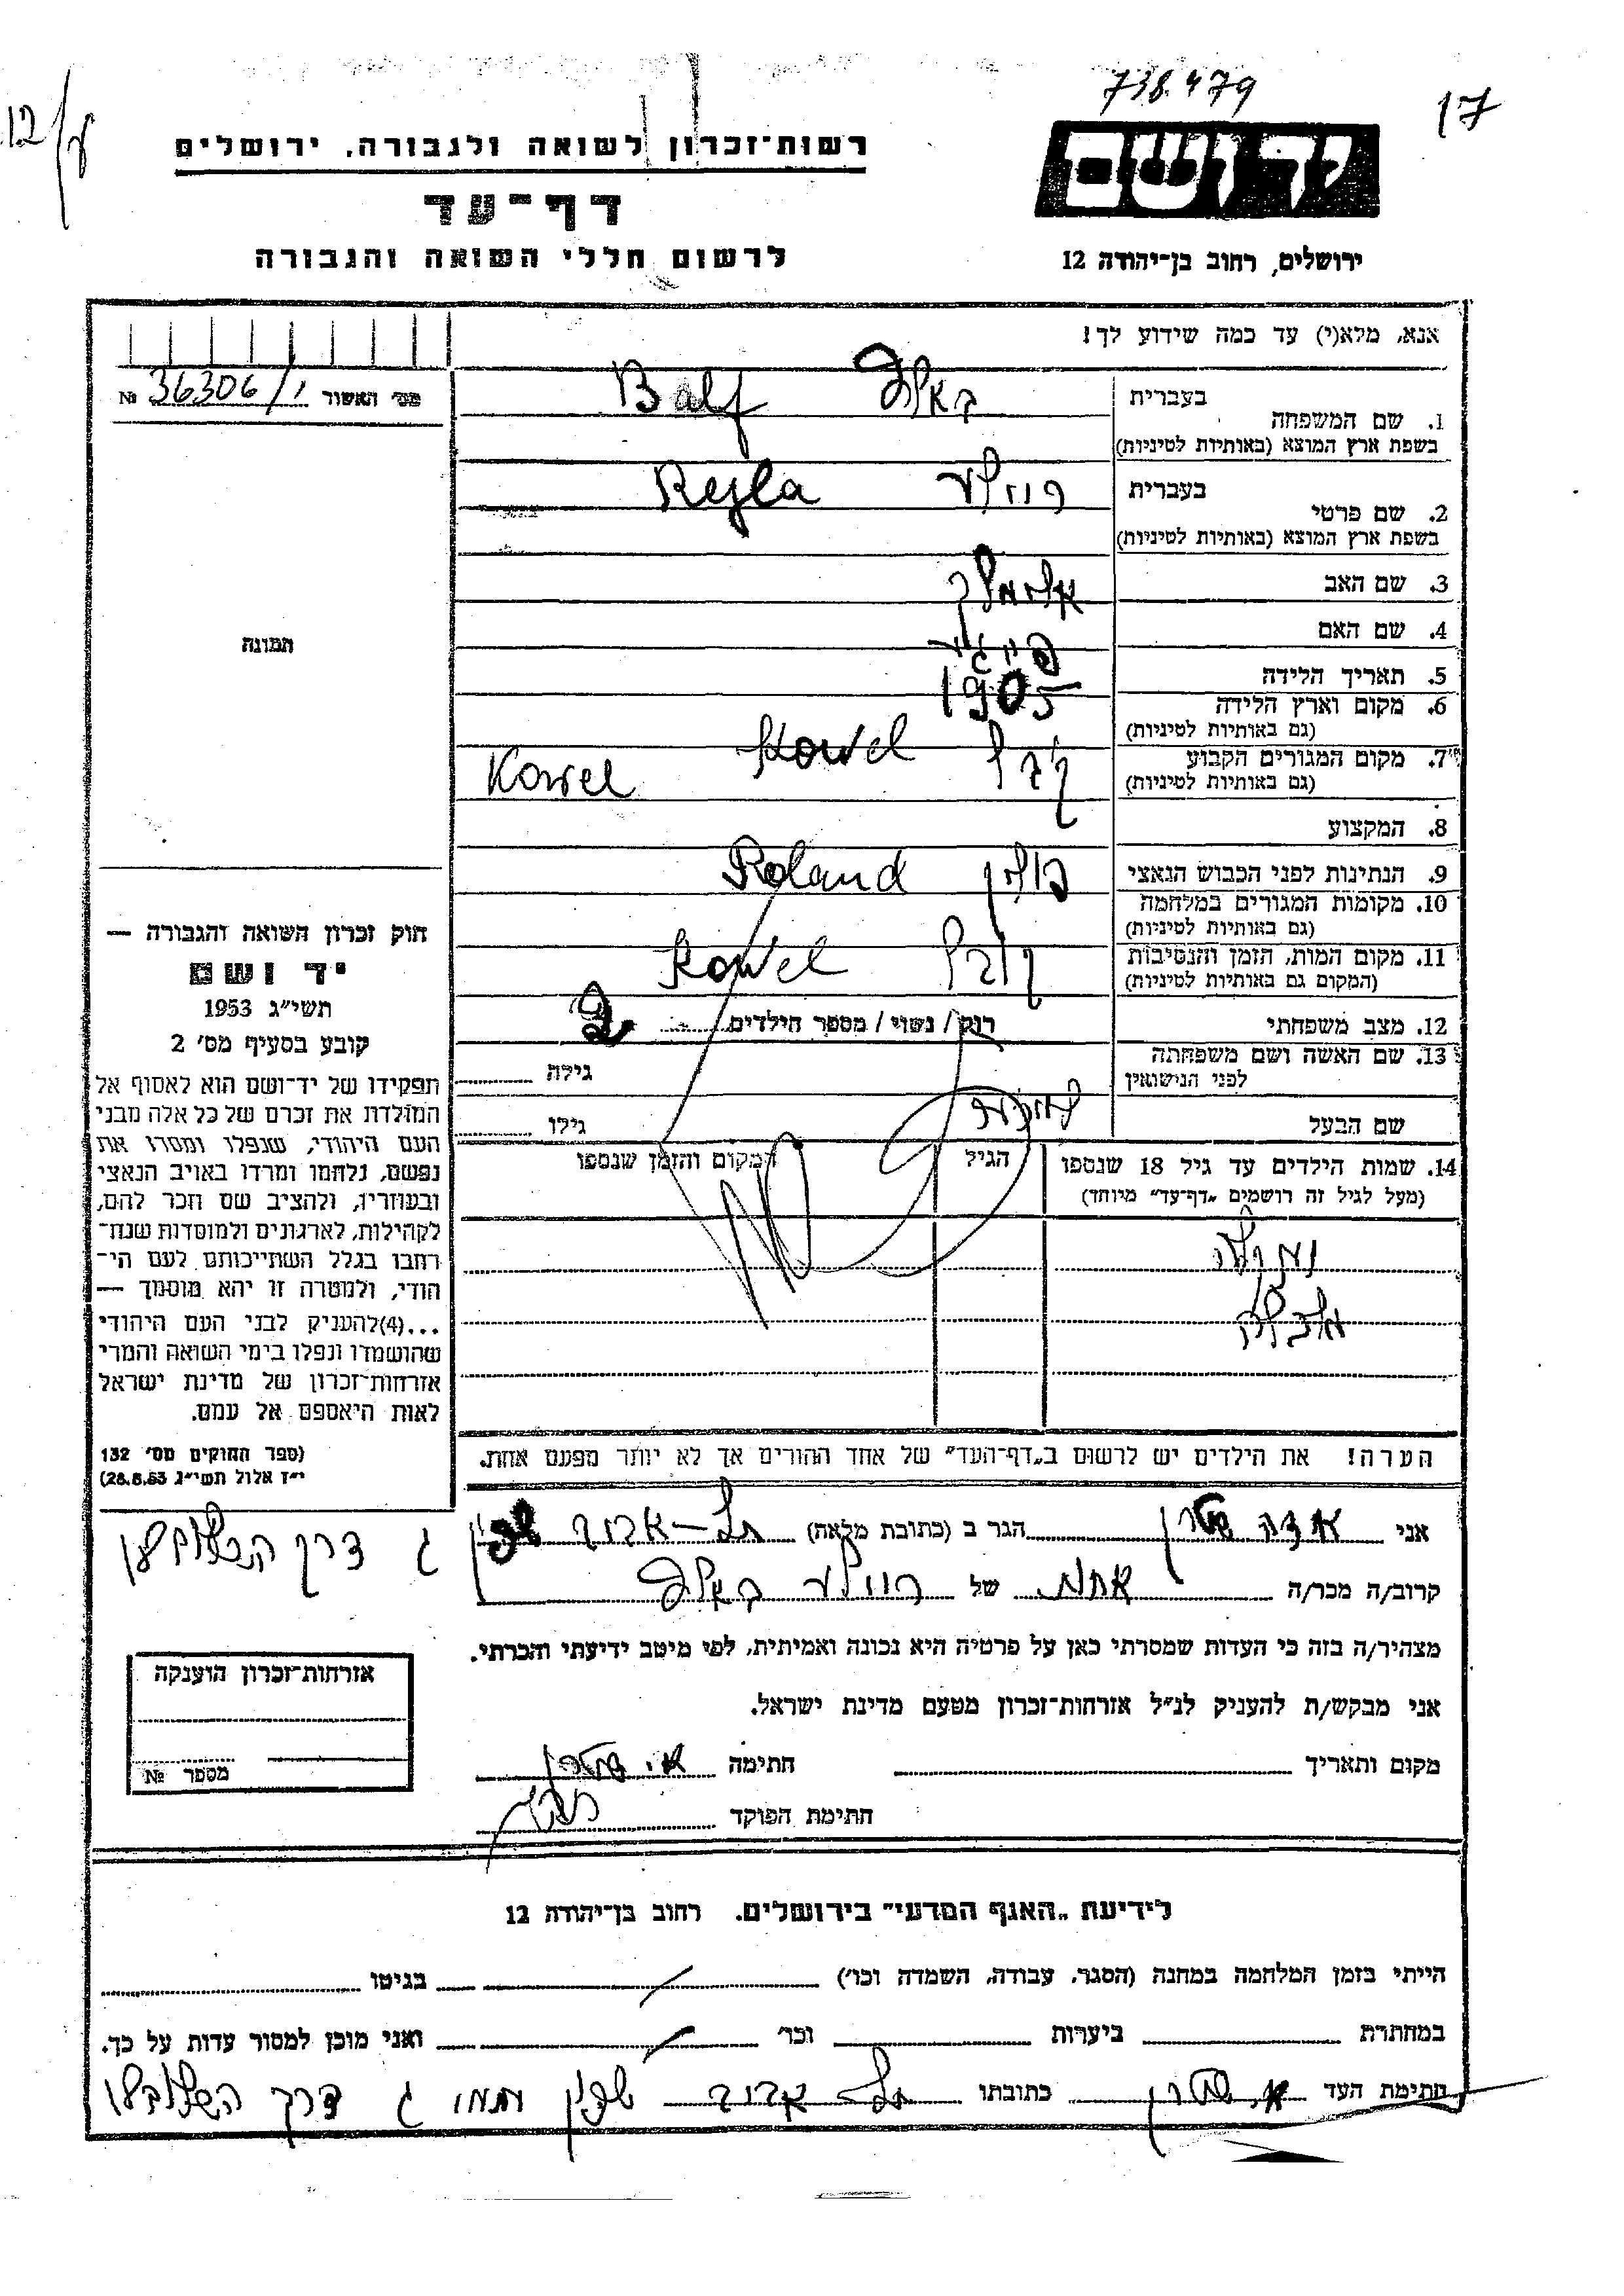 738.479
17
12/
רשות־זכרון לשואה ולגבורה, ירושלים
יד ושם
דף־עד
לרשום חללי השואה והגבורה
ירושלים, רחוב בן־יהודה 12
אנא, מלא(י) עד כמה שידוע לך!
מס׳ האשור 36306/ №
בעברית
1. שם המשפחה
בשפת ארץ המוצא (באותיות לטיניות)
באלף Balf
בעברית
2. שם פרטי
בשפת ארץ המוצא (באותיות לטיניות)
רוזלע Rejla
3. שם האב
אלימלך
4. שם האם
5. תאריך הלידה
1905
6. מקום וארץ הלידה
(גם באותיות לטיניות)
Kowel
7. מקום המגורים הקבוע
(גם באותיות לטיניות)
קובל Kowel
8. המקצוע
9. הנתינות לפני הכבוש הנאצי
פולין Poland
10. מקומות המגורים במלחמה
(גם באותיות לטיניות)
11. מקום המות, הזמן והנסיבות
(המקום גם באותיות לטיניות)
קובל Kowel
12. מצב משפחתי
רוק / נשוי / מספר הילדים 2
13. שם האשה ושם משפחתה
לפני הנישואין
גילה
שם הבעל
גילו
14. שמות הילדים עד גיל 18 שנספו
(מעל לגיל זה רושמים „דף־עד״ מיוחד)
הגיל
המקום והזמן שנספו
תמונה
חוק זכרון השואה והגבורה —
יד ושם
תשי״ג 1953
קובע בסעיף מס׳ 2
תפקידו של יד־ושם הוא לאסוף אל
המולדת את זכרם של כל אלה מבני
העם היהודי, שנפלו ומסרו את
נפשם, נלחמו ומרדו באויב הנאצי
ובעוזריו, ולהציב שם וזכר להם,
לקהילות, לארגונים ולמוסדות שנח־
רבו בגלל השתייכותם לעם הי־
הודי, ולמטרה זו יהא מוסמך —
...(4)להעניק לבני העם היהודי
שהושמדו ונפלו בימי השואה והמרי
אזרחות־זכרון של מדינת ישראל
לאות היאספם אל עמם.
(ספר החוקים מס׳ 132
י״ז אלול תשי״ג 28.8.53)
הערה! את הילדים יש לרשום ב„דף־העד״ של אחד ההורים אך לא יותר מפעם אחת.
אני אדה שטרן הגר ב (כתובת מלאה) תל–אביב
ג דרך השלום
קרוב/ה מכר/ה אחות של רוזלע באלף
מצהיר/ה בזה כי העדות שמסרתי כאן על פרטיה היא נכונה ואמיתית, לפי מיטב ידיעתי והכרתי.
אני מבקש/ת להעניק לנ״ל אזרחות־זכרון מטעם מדינת ישראל.
מקום ותאריך
חתימה א. שטרן
חתימת הפוקד
אזרחות־זכרון הוענקה
מספר №
לידיעת „האגף המדעי״ בירושלים. רחוב בן־יהודה 12
הייתי בזמן המלחמה במחנה (הסגר, עבודה, השמדה וכו׳) בגיטו
במחתרת ביערות וכו׳ ואני מוכן למסור עדות על כך.
חתימת העד א. שטרן כתובתו תל–אביב ג דרך השלום